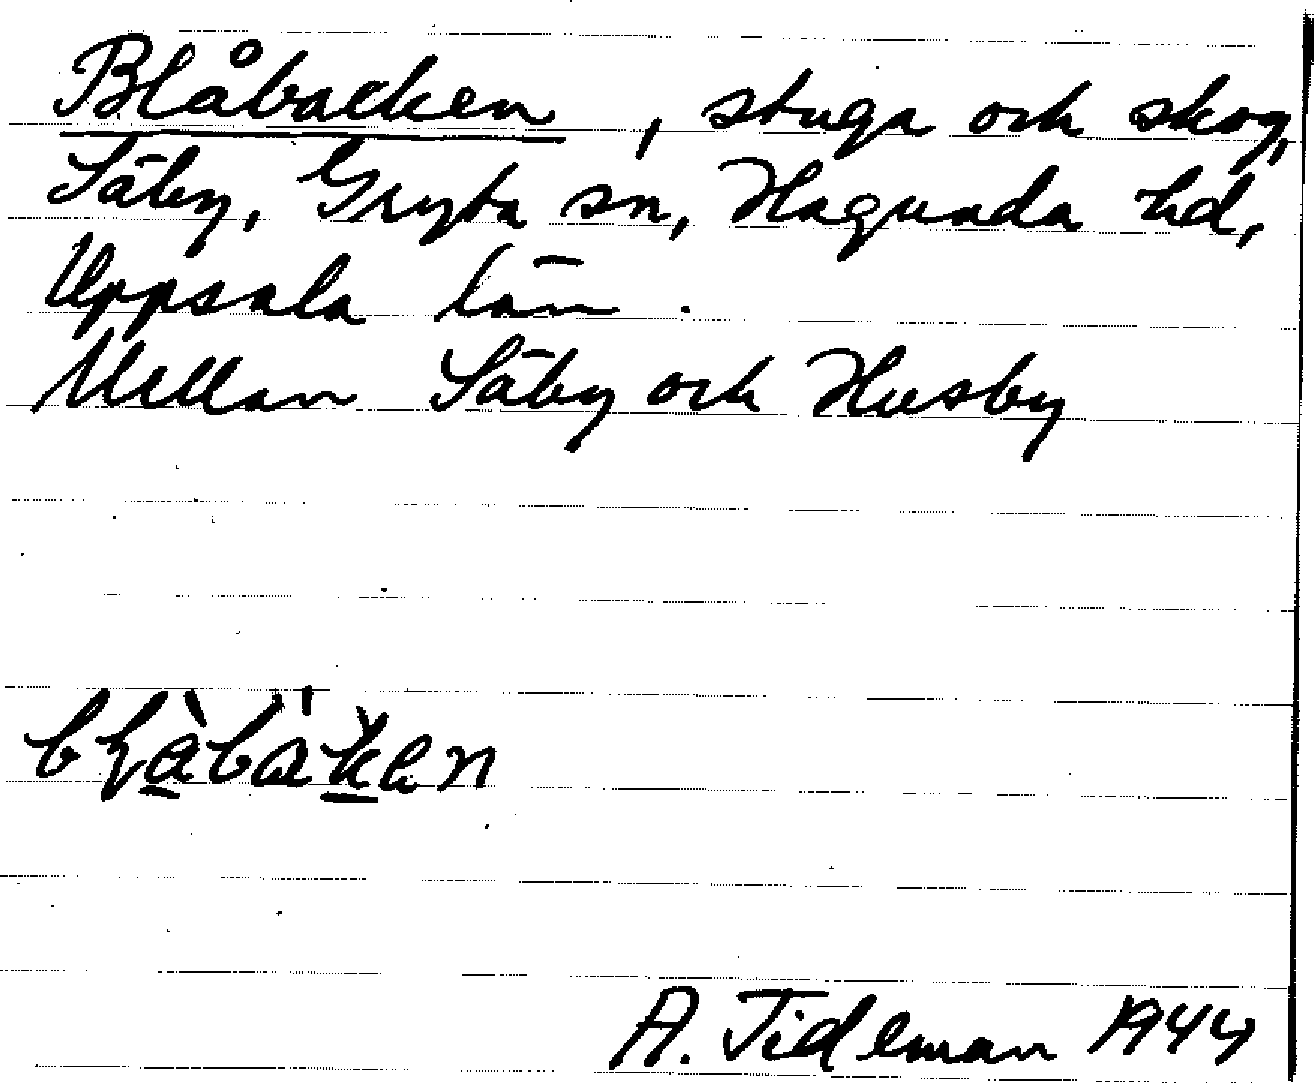 Blåbacken, stuga och skog,
Säby, Gryta sn, Hagunda hd,
Uppsala län.
Mellan Säby och Husby
A. Tideman 1944